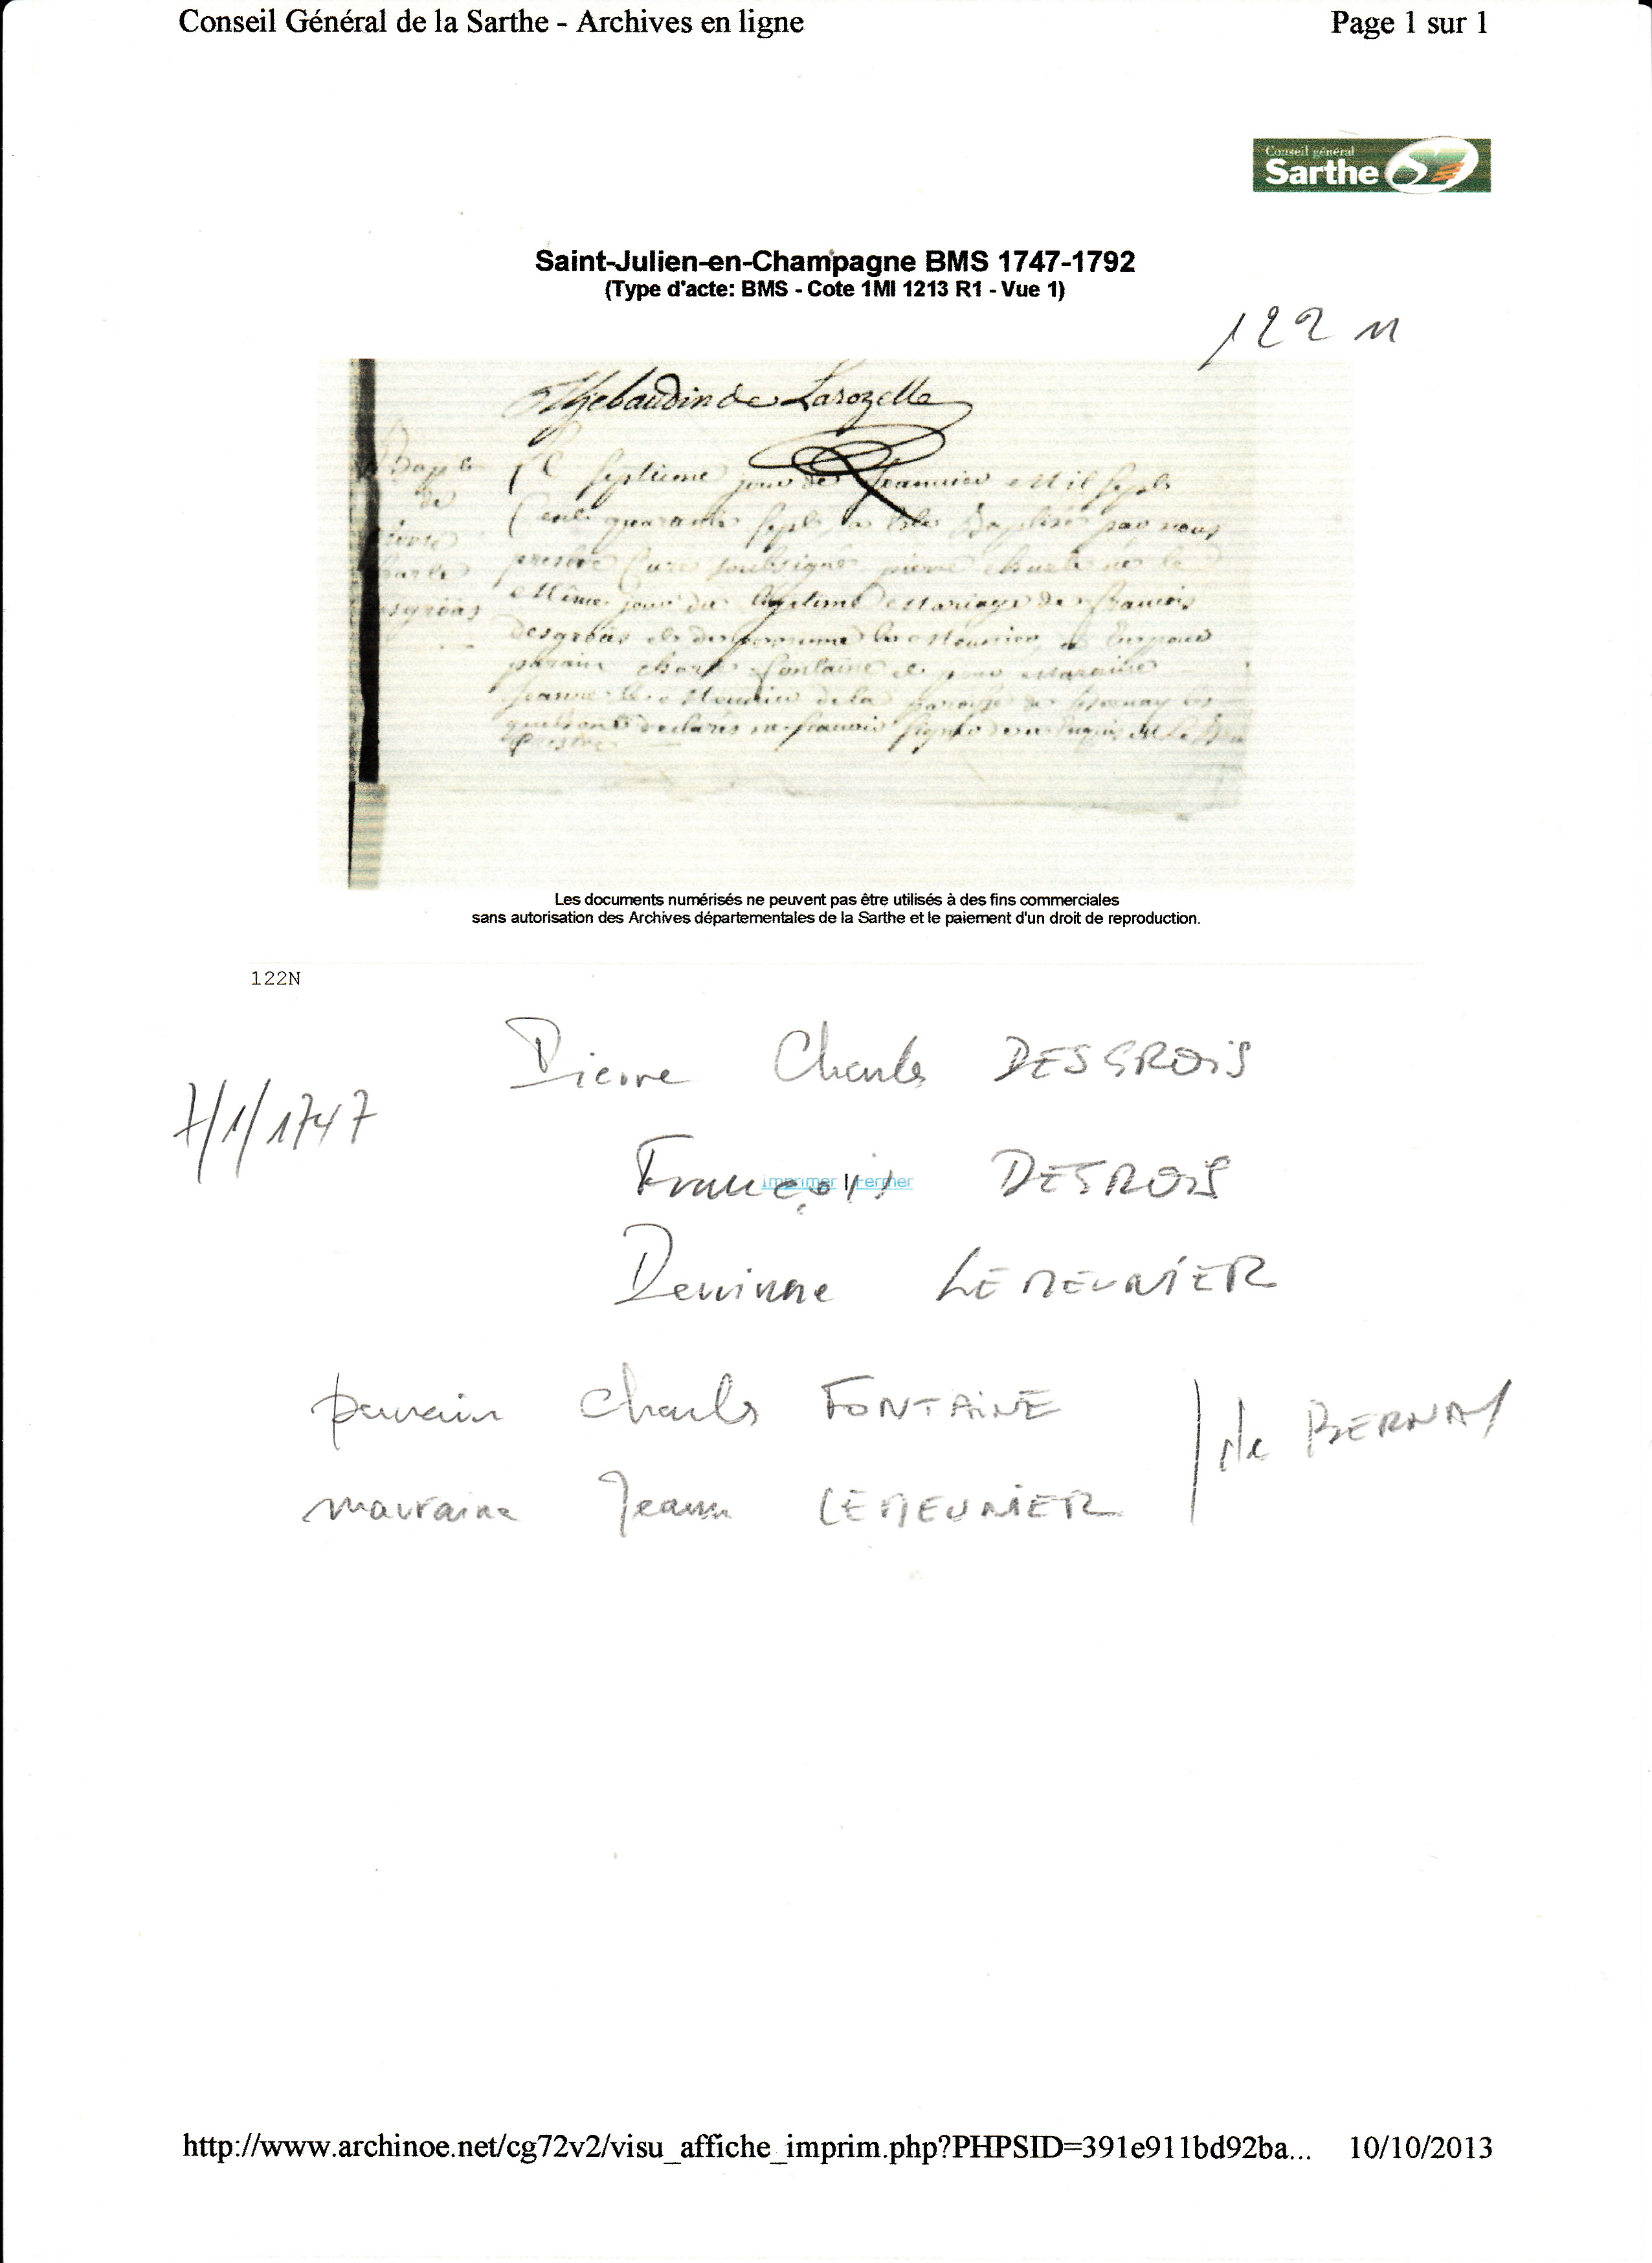 Conseil Général de la Sarthe - Archives en ligne Page 1 sur 1
Conseil général
Sarthe
Saint-Julien-en-Champagne BMS 1747-1792
(Type d'acte: BMS - Cote 1MI 1213 R1 - Vue 1)
122 N
Thebaudin de Larozelle
Bapt
de
pierre
charle
desgrois
Le septieme jour de Jeanvier Mil sept
Cent quarante sept, a este Baptisé par nous
prestre Curé soubsigné pierre charle né le
Même jour du legitime Mariage de francois
desgrois et de perrinne le Meunier, a eu pour
parain charle fontaine et pour Maraine
Jeanne le Meunier de la paroisse de Bernay les
quels ont declarés ne scavoir signer
prestre
Les documents numérisés ne peuvent pas être utilisés à des fins commerciales
sans autorisation des Archives départementales de la Sarthe et le paiement d'un droit de reproduction.
122N
Pierre Charles DESGROIS
7/1/1747
François DESROIS
Imprimer | Fermer
Perrinne LEMEUNIER
parrain Charles FONTAINE
de BERNAY
marraine Jeanne LEMEUNIER
http://www.archinoe.net/cg72v2/visu_affiche_imprim.php?PHPSID=391e911bd92ba... 10/10/2013